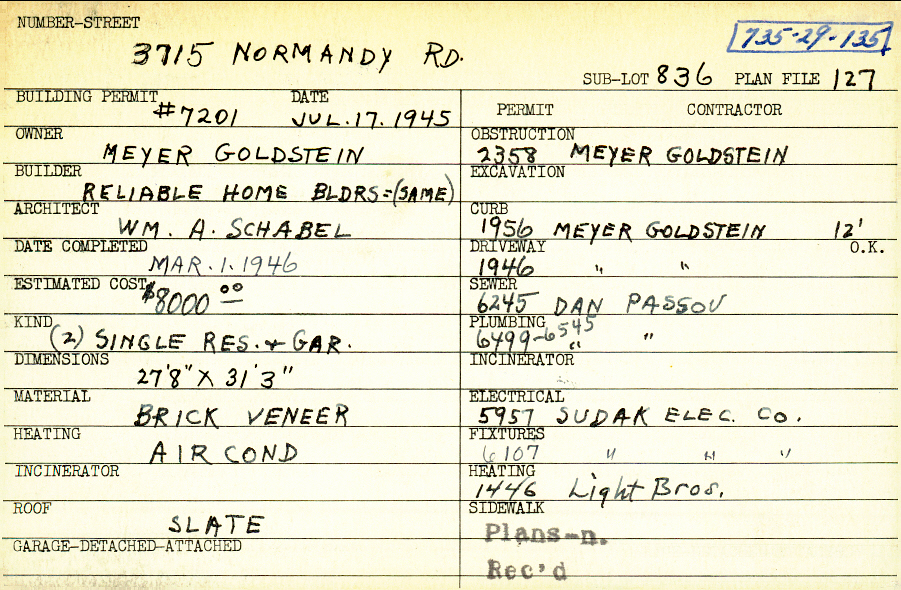 NUMBER-STREET
3715 NORMANDY RD.
735-29-135
SUB-LOT 836 PLAN FILE 127
BUILDING PERMIT DATE
#7201 JUL.17.1945
PERMIT CONTRACTOR
OWNER
MEYER GOLDSTEIN
OBSTRUCTION
2358 MEYER GOLDSTEIN
BUILDER
RELIABLE HOME BLDRS=(SAME)
EXCAVATION
ARCHITECT
WM. A. SCHABEL
CURB
1956 MEYER GOLDSTEIN 12'
DATE COMPLETED
MAR.1.1946
DRIVEWAY O.K.
1946 " "
ESTIMATED COST
$8000 00
SEWER
6245 DAN PASSOV
KIND
(2) SINGLE RES. & GAR.
PLUMBING
6499-6545 " "
DIMENSIONS
27'8" X 31'3"
INCINERATOR
MATERIAL
BRICK VENEER
ELECTRICAL
5957 SUDAK ELEC. CO.
HEATING
AIR COND
FIXTURES
6107 " " "
INCINERATOR
HEATING
1446 Light Bros.
ROOF
SLATE
SIDEWALK
Plans-n.
GARAGE-DETACHED-ATTACHED
Rec'd